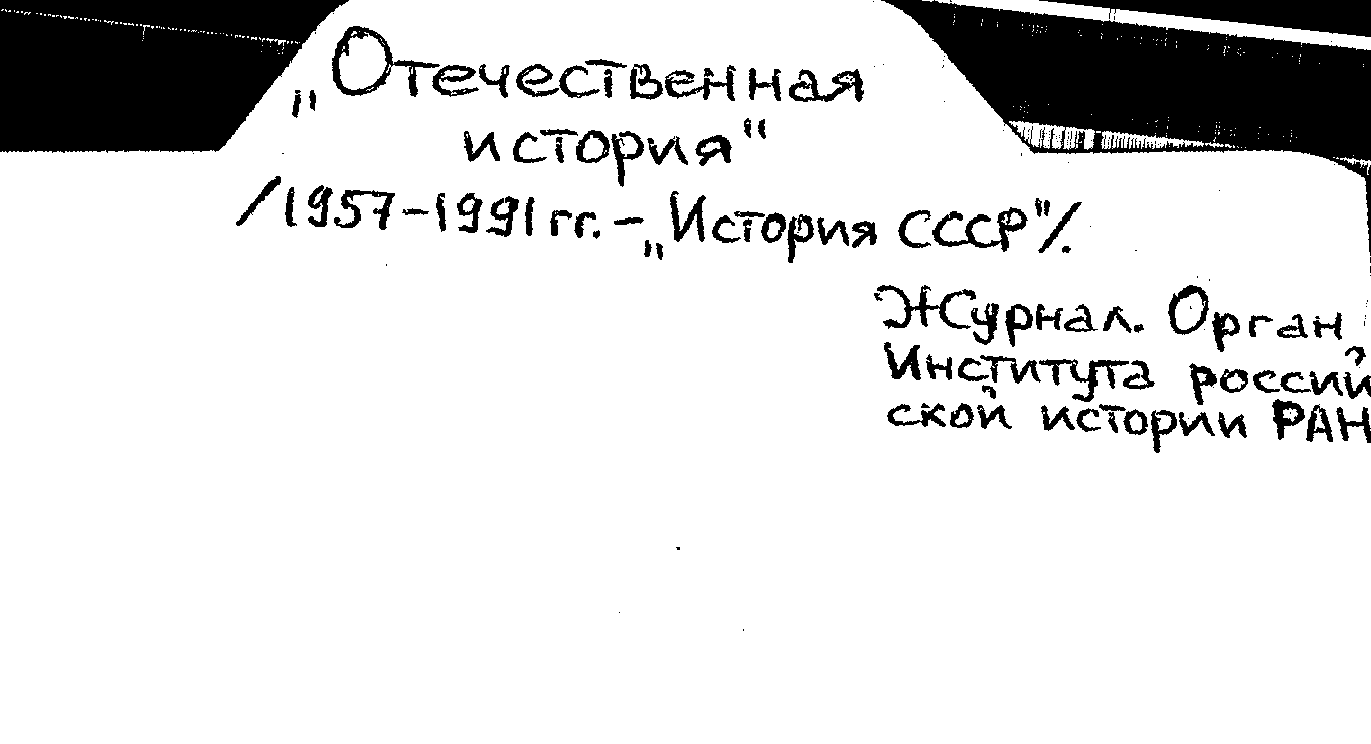 „Отечественная
история“
/1957-1991 гг. - „История СССР"/.
Журнал. Орган
Института россий
ской истории РАН